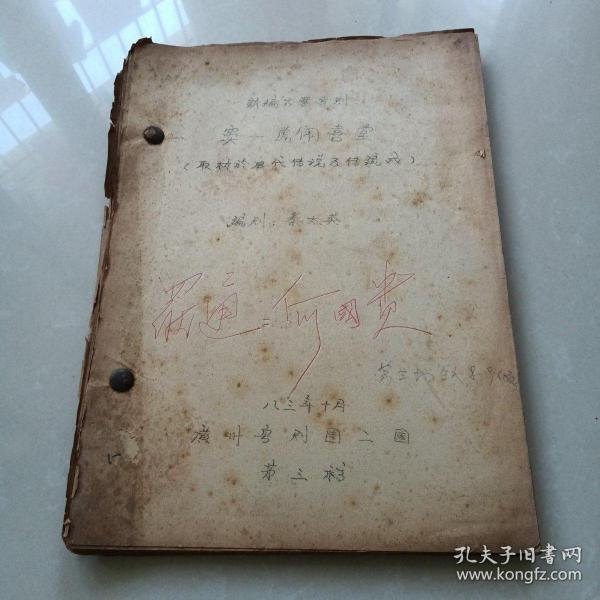 新编古装粤剧
窦一虎闹喜堂
(取材於历代传说及传统戏)
编剧:秦太英
罗通:何國贵
第三场
八三年十月
廣州粤剧团二团
第三稿
孔夫子旧书网
www.kongfz.com